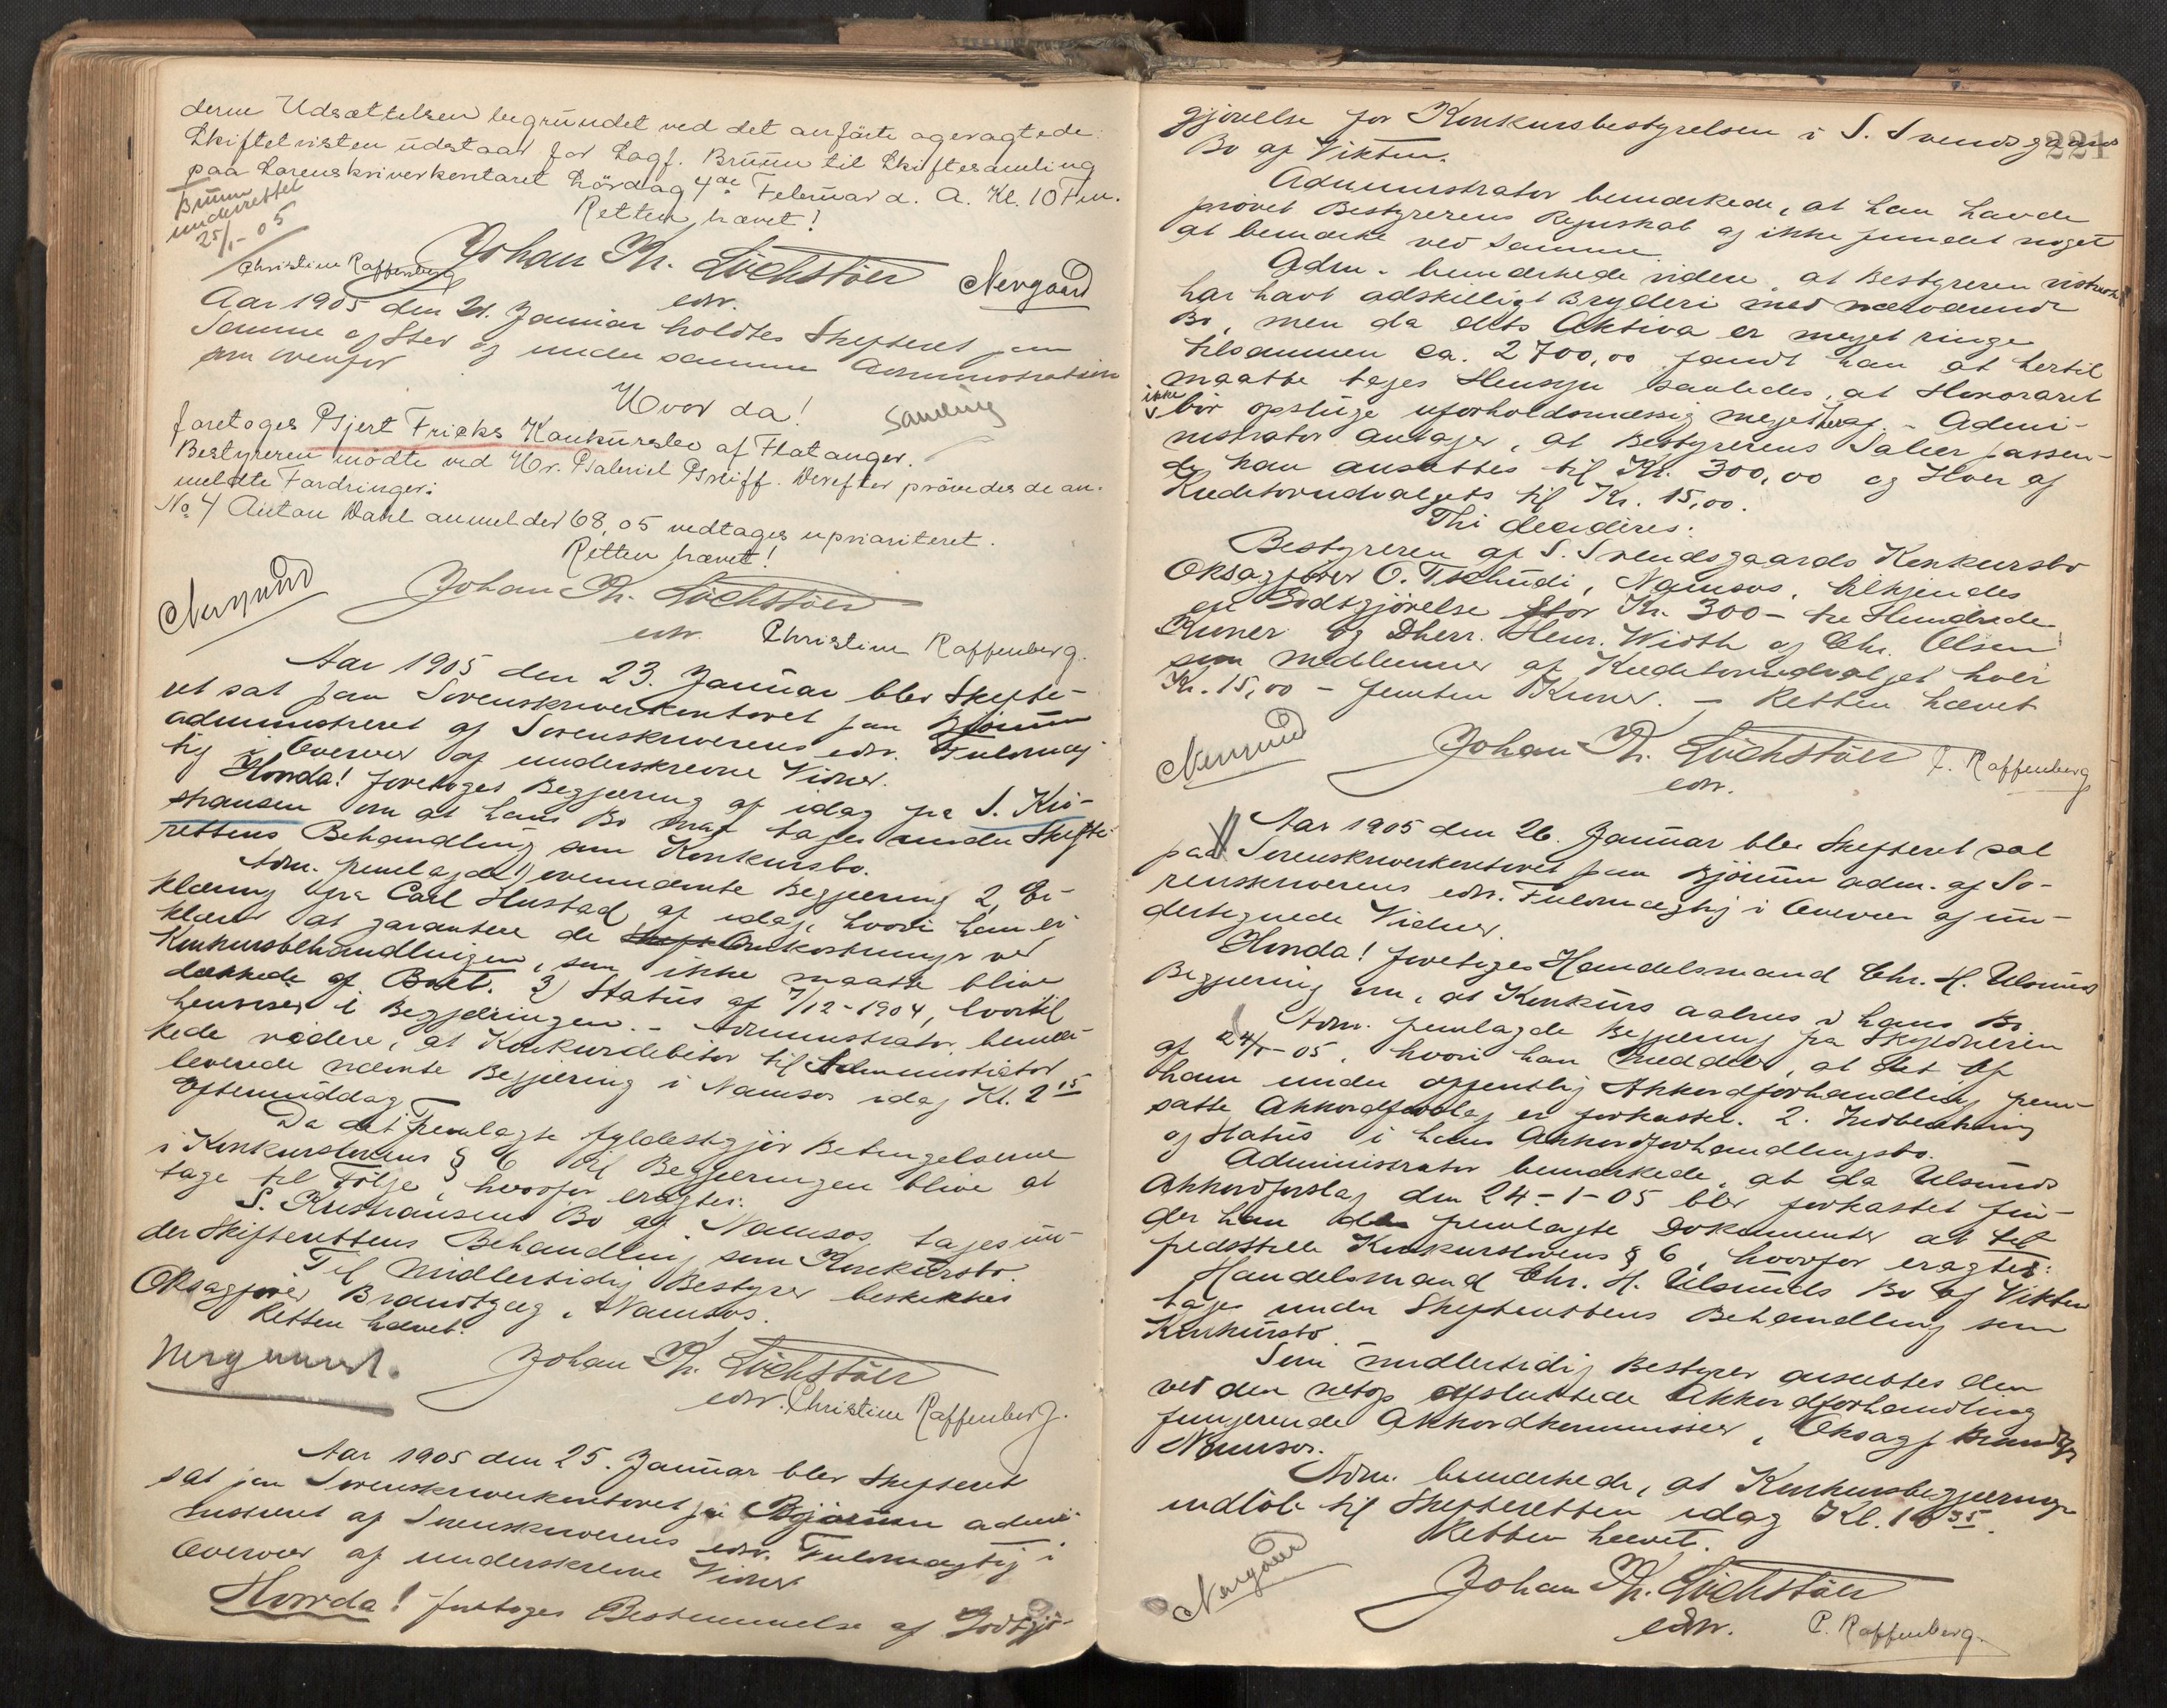 derne Udsættelsen begrundet ved det anførte
Skiftet udstaar for Sagf. Bruun til Skiftesamling
paa Sorenskriverkontoret Lördag 4de Februar d. A. Kl. 10 Fm.
Retten hævet!
Bruun
underrettet
25/1-05
Johan Th. Löchstöer
edsv.
Nergaard
Christine Raffenberg
Aar 1905 den 21. Januar holdtes Skifteret paa
samme Sted og under samme Administration
som ovenfor
Hvor da!
Samling
foretoges Gjert Fricks Konkursbo af Flatanger.
Bestyreren mödte ved Hr. Gabriel Greiff. Derefter prövedes de an-
meldte Fordringer:
No 4 Anton Dahl anmelder 68,05 vedtages uprioriteret.
Retten hævet!
Nergaard
Johan Th. Löchstöer
edsv.
Christine Raffenberg.
Aar 1905 den 23. Januar blev Skifte-
ret sat paa Sorenskriverkontoret paa Björum
administreret af Sorenskriverens edsv. Fuldmæg-
tig i Overvær af underskrevne Vidner.
Hvorda! foretoges Begjæring af idag fra S. Kri-
stiansen om at hans Bo maa tages under Skifte-
rettens Behandling som Konkursbo.
Adm. fremlagde 1) ovennævnte Begjæring 2, Er-
klæring fra Carl Hustad af idag, hvori han er-
klærer at garantere de Omkostninger ved
Konkursbehandlingen, som ikke maatte blive
dækkede af Boet. 3) Status af 7/12-1904, hvortil
henvises i Begjæringen. - Administrator bemær-
kede videre, at Konkursdebitor til Administrator
leverede nævnte Begjæring i Namsos idag Kl. 2 15
Eftermiddag.
Da det Fremlagte fyldestgjör Betingelserne
i Konkurslovens § 6 vil Begjæringen blive at
tage til Fölge, hvorfor eragtes:
S. Kristiansens Bo af Namsos tages un-
der Skifterettens Behandling som Konkursbo.
Til Midlertidig Bestyrer beskikkes
Oksagförer Brandtzæg, Namsos.
Retten hævet.
Nergaard.
Johan Th. Löchstöer
edsv.
Christine Raffenberg.
Aar 1905 den 25. Januar blev Skifteret
sat paa Sorenskriverkontoret paa Björum admi-
nistreret af Sorenskriverens edsv. Fuldmægtig i
Overvær af underskrevne Vidner
Hvorda! foretoges Bestemmelse af Godtgjö-
221
gjörelse for Konkursbestyrelsen i S. Svendsgaards
Bo af Vikten.
Administrator bemærkede, at han havde
prövet Bestyrerens Regnskab og ikke fundet noget
at bemærke ved samme.
Adm. bemærkede videre, at Bestyreren vistnok
har havt adskilligt Bryderi med nærværende
Bo, men da dets Aktiva er meget ringe
tilsammen ca. 2700,00 fandt han at hertil
maatte tages Hensyn saaledes, at Honoraret
ikke
bör opsluge uforholdsmæssig meget heraf. - Admi-
nistrator antager, at Bestyrerens Salær passen-
de kan ansættes til Kr. 300,00 og Hver af
Kreditorudvalgets til Kr. 15,00.
Thi decideres:
Bestyreren af S. Svendsgaards Konkursbo
Oksagförer O. Tschudi, Namsos, tilkjendes
en Godtgjörelse stor Kr. 300 - tre Hundrede
Kroner og Dherr. Henr. Width og Chr. Olsen
som medlemmer af Kreditorudvalget hver
Kr. 15,00 - femten Kroner. - Retten hævet
Nergaard
Johan Th. Löchstöer
edsv.
Raffenberg
Aar 1905 den 26. Januar blev Skifteret sat
paa Sorenskriverkontoret paa Björum adm. af So-
renskriverens edsv. Fuldmægtig i Overvær af un-
dertegnede Vidner.
Hvorda! foretoges Handelsmand Chr. H. Ulsunds
Begjæring om, at Konkurs aabnes i hans Bo.
Adm. fremlagde Begjæring fra Skyldneren
af 24/1-05, hvori han meddeler, at det af
ham under offentlig Akkordforhandling frem-
satte Akkordforslag er forkastet. 2. Indberetning
og Status i hans Akkordforhandlingsbo.
Administrator bemærkede, at da Ulsunds
Akkordforslag den 24-1-05 blev forkastet fin-
der han de fremlagte Dokumenter at til-
fredsstille Konkurslovens § 6, hvorfor eragtes:
Handelsmand Chr. H. Ulsunds Bo af Vikten
tages under Skifterettens Behandling som
Konkursbo.
Som midlertidig Bestyrer ansættes den
ved den netop afsluttede Akkordforhandling
fungerende Akkordkommissær, Oksagf Brandtzæg
Namsos.
Adm. bemærkede, at Konkursbegjæringen
indlöb til Skifteretten idag Kl. 10 35.
Retten hævet.
Nergaard
Johan Th. Löchstöer
edsv.
C. Raffenberg.